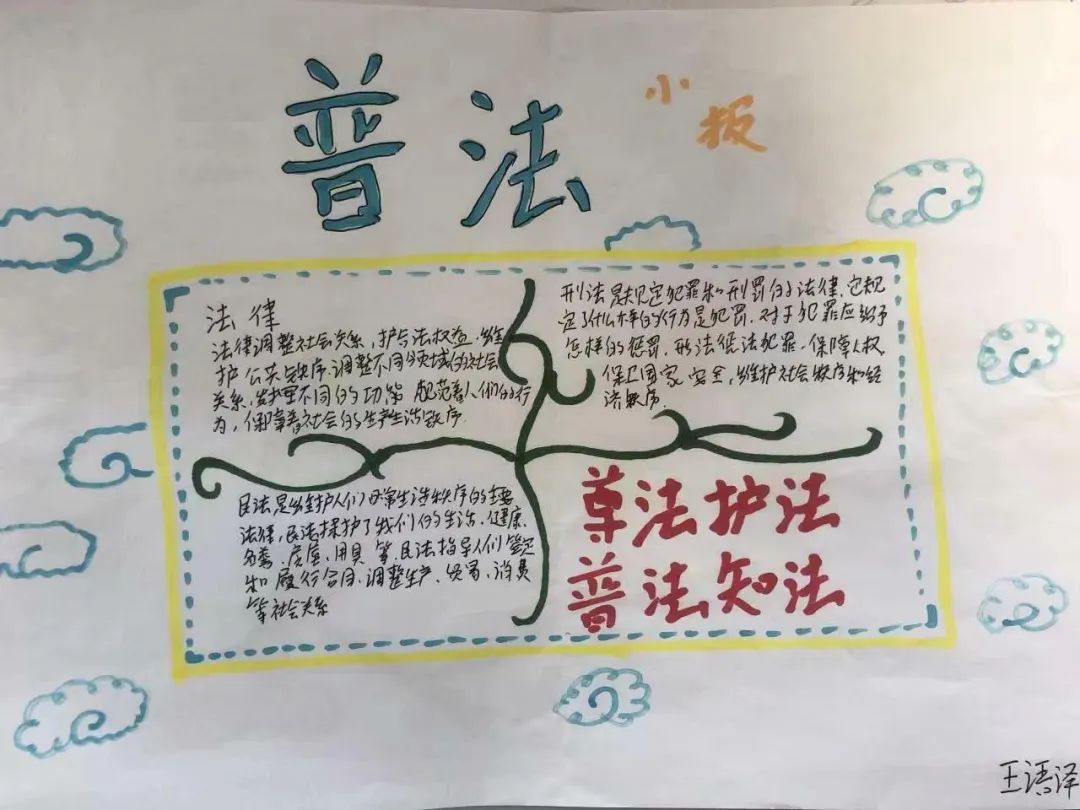 普法
小板
法律
法律调整社会关系,护与法权益,维
护公共秩序,调整不同领域的社会
关系,发挥不同的功能 规范着人们的行
为,保障着社会的生产生活秩序.
刑法是规定犯罪和刑罚的法律,它规
定了什么样的行为是犯罪.对于犯罪应给予
怎样的惩罚.刑法惩法犯罪.保障人权.
保卫国家安全,维护社会秩序和经
济秩序.
民法是维护人们日常生活秩序的主要
法律,民法保护了我们的生活.健康.
名誉.房屋.用具 等.民法指导人们签定
和履行合同.调整生产、贸易、消费
等社会关系
尊法护法
普法知法
王语泽